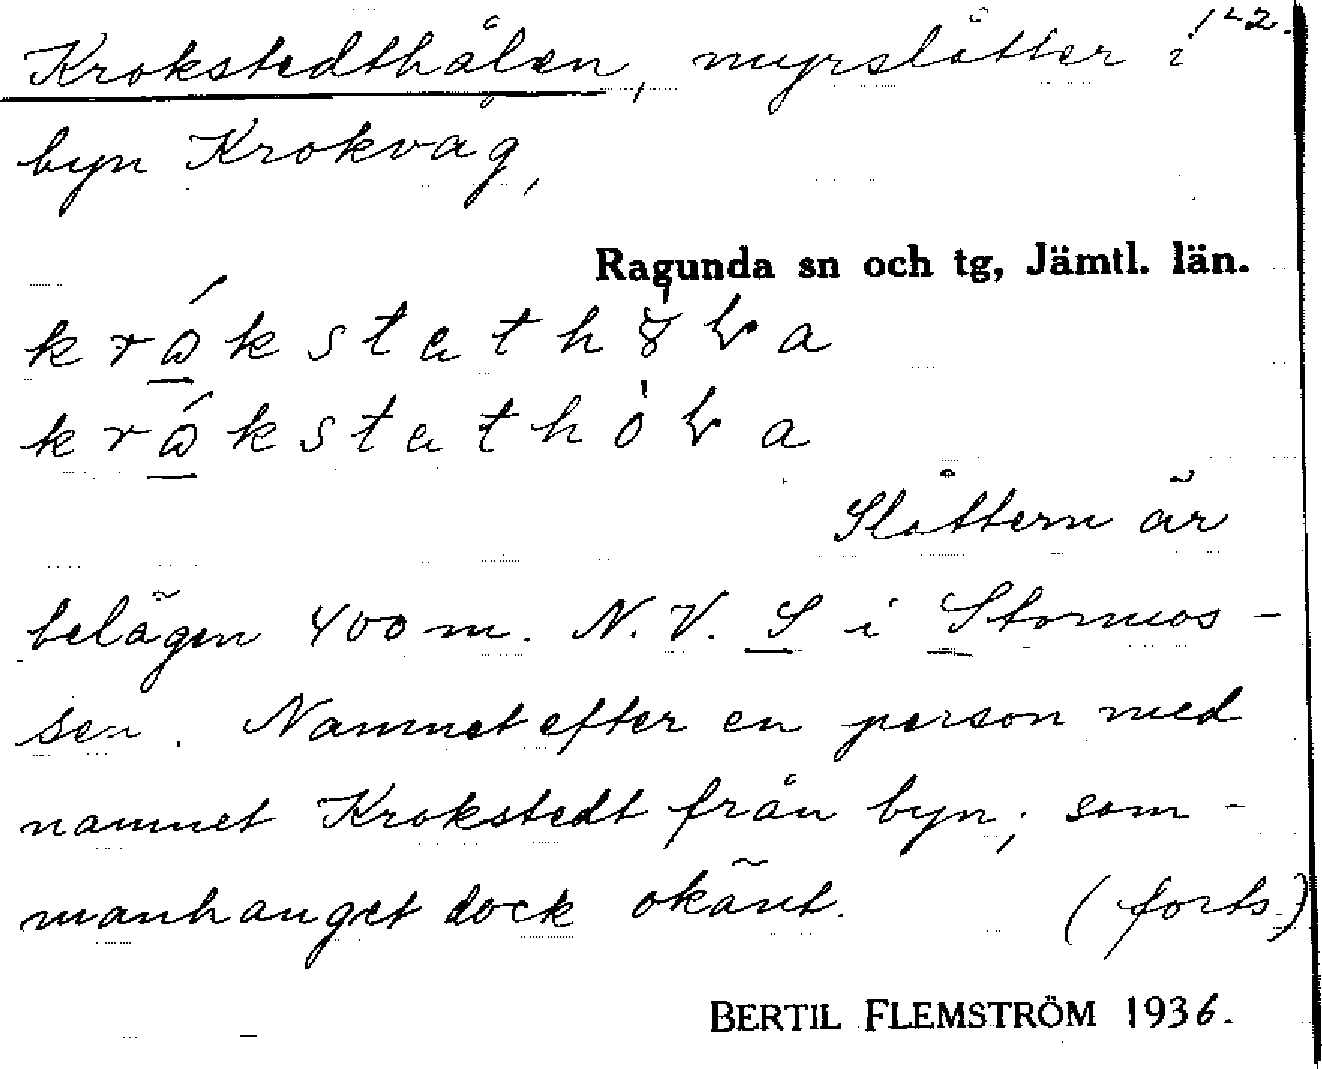 1-2.
Krokstedthålen, myrslåtter i
byn Krokvåg,
Ragunda sn och tg, Jämtl. län.
Slåttern är
belägen 400 m. N.V. S i Stormos-
sen. Namnet efter en person med
namnet Krokstedt från byn; som-
manhanget dock okänt. (forts.)
BERTIL FLEMSTRÖM 1936.